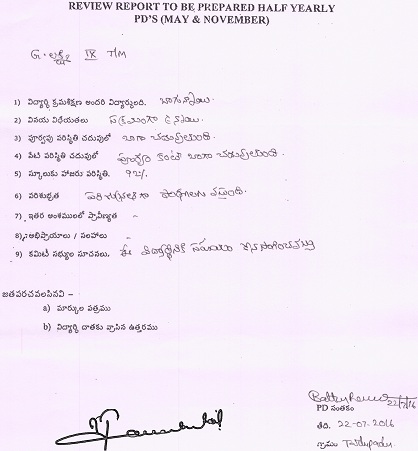 REVIEW REPORT TO BE PREPARED HALF YEARLY
PD'S (MAY & NOVEMBER)
G. లక్ష్మి IX T/M
1) విద్యార్థి క్రమశిక్షణ అందరి విద్యార్థులది. బాగున్నాయి.
2) వినయ విధేయతలు
3) పూర్వపు పరిస్థితి చదువులో బాగా చదువుతుంది.
4) నేటి పరిస్థితి చదువులో పూర్వం కంటే బాగా చదువుతుంది.
5) స్కూలుకు హాజరు పరిస్థితి. 92%.
6) పరిశుభ్రత
7) ఇతర అంశములలో ప్రావీణ్యత -
8) అభిప్రాయాలు / సలహాలు -
9) కమిటీ సభ్యుల సూచనలు. ఈ
జతపరచవలసినవి –
a) మార్కుల పత్రము
b) విద్యార్థి దాతకు వ్రాసిన ఉత్తరము
22/7/16
PD సంతకం
తేది. 22-07-2016
గ్రామం